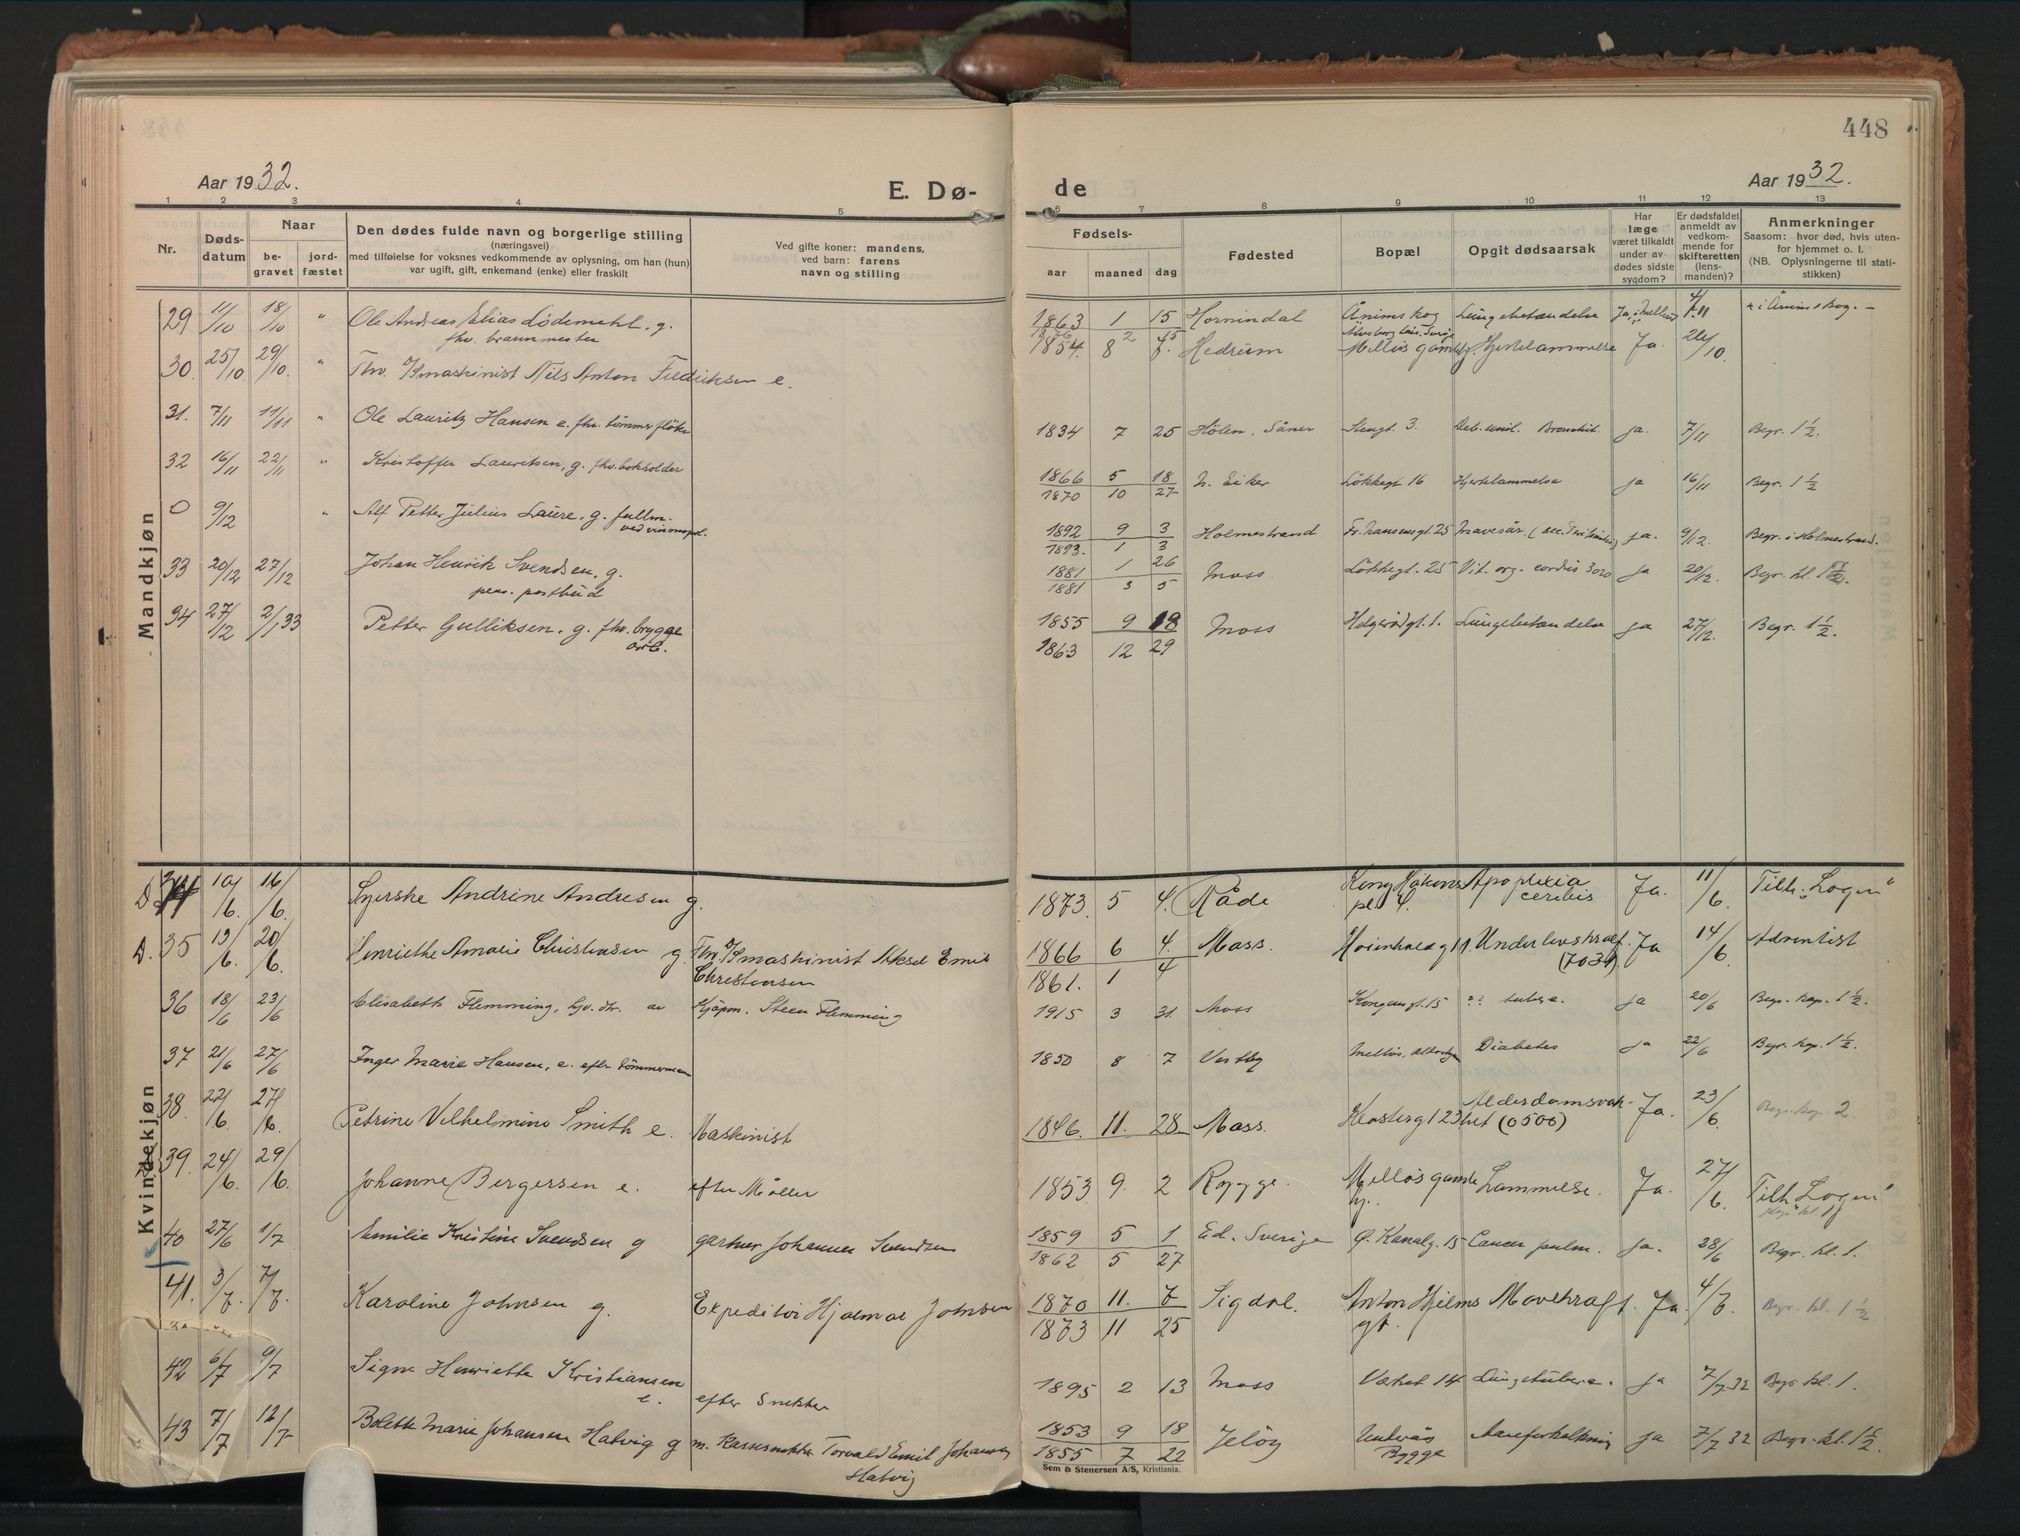 448
Aar 1932.
E. Dø-
de
Aar 1932.
1 2 3 4 5 6 7 8 9 10 11 12 13
Nr.
Døds-
datum
Naar
be-
gravet
jord-
fæstet
Den dødes fulde navn og borgerlige stilling
(næringsvei)
med tilføielse for voksnes vedkommende av oplysning, om han (hun)
var ugift, gift, enkemand (enke) eller fraskilt
Ved gifte koner: mandens,
ved barn: farens
navn og stilling
Fødsels-
aar maaned dag
Fødested
Bopæl
Opgit dødsaarsak
Har
læge
været tilkaldt
under av-
dødes sidste
sygdom?
Er dødsfaldet
anmeldt av
vedkom-
mende for
skifteretten
(lens-
manden)?
Anmerkninger
Saasom: hvor død, hvis uten-
for hjemmet o. l.
(NB. Oplysningerne til stati-
stikken)
Mandkjøn
29 11/10 18/10 " Ole Andreas Elias Lødemehl, g. 1863 1 15 Hornindal Ånimskog Lungebetændelse
fhv. brannmester
30. 25/10 29/10. " Fhv. maskinist Nils Anton Fredriksen e. 1854. 8 Hedrum Melløs gamleh. Hjertelammelse Ja. 26/10.
31. 7/11 11/11 " Ole Lauritz Hansen e. fhv. tømmerfløter 1834 7 25 Hølen, Såner Stengt. 3. Deb. senil. Bronchit. ja. 7/11 Begr. 1 1/2.
32 16/11 22/11 " Kristoffer Lauritsen, g. fhv. bokholder 1866 5 18 N. Eiker Løkkegt 16 Hjertelammelse ja 16/11 Begr. 1 1/2
1870 10 27
0 9/12 " Alf Petter Julius Laure, g. fullm. 1892 9 3 Holmestrand Fr. Nansensgt. 25 Mavesår ja. 9/12. Begr. i Holmestrand.
ved vinmonopol. 1893. 1 3
33 20/12 27/12 Johan Henrik Svendsen, g. 1881 1 26 Moss Løkkegt. 25 Vit. org. cordis ja 20/12. Begr. kl. 1 1/2.
pens. postbud 1881 3 5
34 27/12 2/1 33 Petter Gulliksen, g. fhv. brygge 1855 9 18 Moss Helgerødgt. 1. Lungebetændelse ja 27/12. Begr. 1 1/2.
arb. 1863 12 29
Kvindekjøn
D. 34 10/6. 16/6. Syerske Andrine Andresen g. 1873. 5 4. Råde Kong Håkons Apoplexia Ja. 11/6. Tilh. "Logen"
pl. 4. cerebis
D. 35 13/6. 20/6. Henriette Amalie Christensen g. Fhv. maskinist Aksel Emil 1866 6 4. Moss. Underlivskræf. Ja 14/6. Adventist
Christensen 1861. 1 4
36 18/6 23/6 Elisabeth Flemming, hjv. dtr. av Kjøpm. Steen Flemming 1915 3 31. Moss Kongensgt. 15 ja 20/6 Begr. kap. 1 1/2.
37 21/6 27/6 Inger Marie Hansen, e. efter tømmermann 1850 8 7 Vestby Melløs. Diabetes ja 22/6 Begr. kap. 1 1/2.
38. 22/6. 27/6. Petrine Vilhelmine Smith e. Maskinist 1846. 11. 28 Moss. Klostergt 23 Alderdomsvak- Ja. 23/6. Begr. kap. 2
het (0500)
39. 24/6. 29/6. Johanne Bergersen e. efter Møller 1853. 9. 2 Rygge. Melløs gamle Lammelse. Ja. 27/6. Tilh. "Logen"
h.
40 27/6 1/7 Emilie Kristine Svendsen g gartner Johannes Svendsen 1859 5 1 Ed. Sverige Ø. Kanalg. 15 Cancer pulm. ja. 28/6 Begr. kl. 1.
1862 5 27
41. 3/7. 7/7. Karoline Johnsen g. Expeditør Hjalmar Johnsen 1870 11. 7 Sigdal. Anton Hjelms Mavekræft. Ja. 4/7. Begr. kl. 1 1/2
1873 11 25 gt.
42 6/7 9/7 Signe Henriette Kristiansen 1895 2 13 Moss Værket 14 Lungetuberc. ja 7/7 32 Begr. kl. 1.
e. efter snekker
43 7/7 12/7 Bolette Marie Johansen Hatvig g m. Kassesnekker Torvald Emil Johansen 1853 9 18 Jeløy Aareforkalkning ja 7/7 32 Begr. kl. 1 1/2.
Hatvig 1855 7 22 Brygge
Sem & Stenersen A/S, Kristiania.